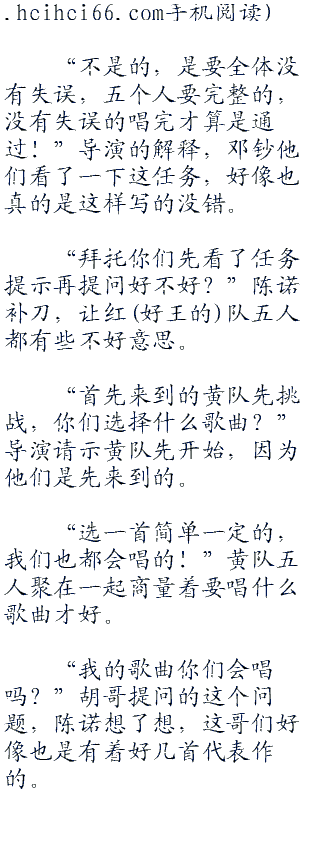 .hcihci66.com手机阅读)
“不是的，是要全体没
有失误，五个人要完整的，
没有失误的唱完才算是通
过！”导演的解释，邓钞他
们看了一下这任务，好像也
真的是这样写的没错。
“拜托你们先看了任务
提示再提问好不好？”陈诺
补刀，让红(好王的)队五人
都有些不好意思。
“首先来到的黄队先挑
战，你们选择什么歌曲？”
导演请示黄队先开始，因为
他们是先来到的。
“选一首简单一定的，
我们也都会唱的！”黄队五
人聚在一起商量着要唱什么
歌曲才好。
“我的歌曲你们会唱
吗？”胡哥提问的这个问
题，陈诺想了想，这哥们好
像也是有着好几首代表作
的。